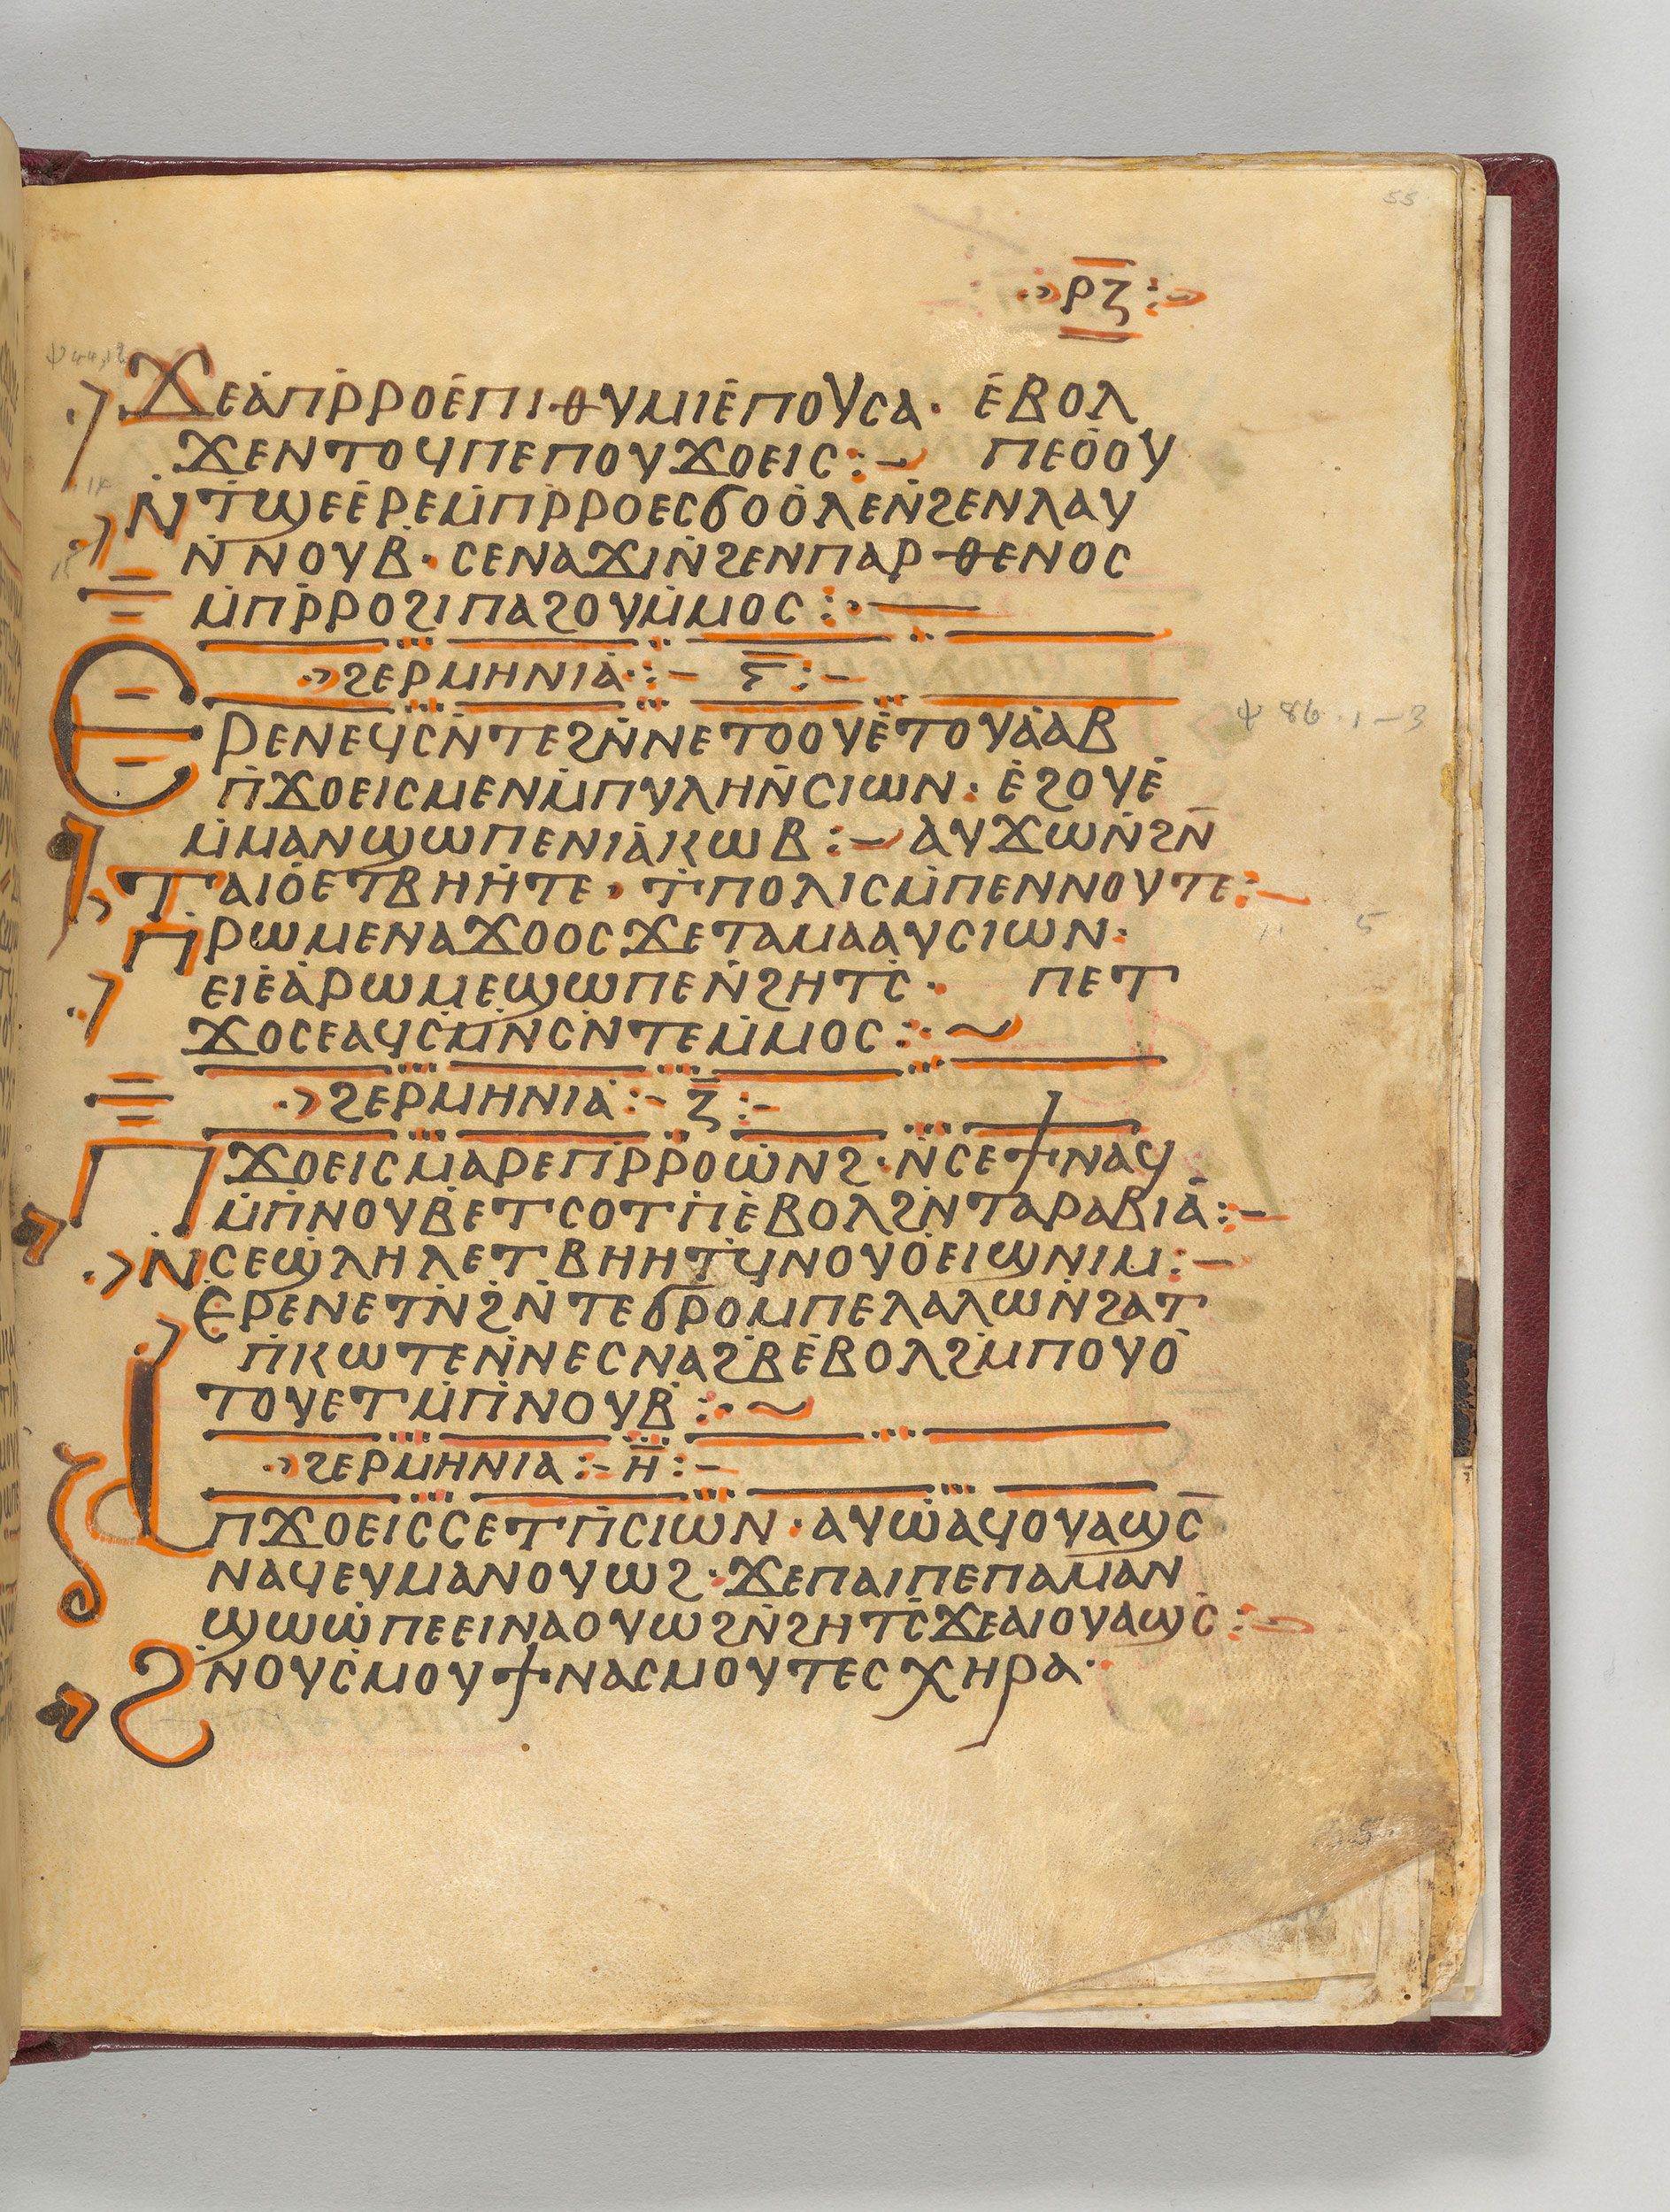 55
ⲣ̅ⲍ̅
ψ 44,12
ϫⲉⲁ̇ⲡⲣ̇ⲣⲟⲉ̇ⲡⲓⲑⲩⲙⲓⲉ̇ⲡⲟⲩⲥⲁ· ⲉ̇ⲃⲟⲗ
ϫⲉⲛⲧⲟϥⲡⲉⲡⲟⲩϫⲟⲉⲓⲥ:– ⲡⲉⲟ̇ⲟⲩ
ⲛ̇ⲧ̇ϣⲉⲉ̇ⲣⲉⲙ̇ⲡⲣ̇ⲣⲟⲉⲥϭⲟⲟ̇ⲗⲉⲛ̇ϩⲉⲛⲗⲁⲩ
ⲛ̇ⲛⲟⲩⲃ̇· ⲥⲉⲛⲁϫⲓⲛ̇ϩⲉⲛⲡⲁⲣⲑⲉⲛⲟⲥ
ⲙ̇ⲡⲣ̇ⲣⲟϩⲓⲡⲁϩⲟⲩⲙ̇ⲙⲟⲥ:·—
ϩⲉⲣⲙⲏⲛⲓⲁ̇·:– ⲋ̅:–
ⲉⲣⲉⲛⲉϥⲥⲛ̇ⲧⲉϩⲛ̇ⲛⲉⲧⲟⲟⲩⲉ̇ⲧⲟⲩⲁ̇ⲁⲃ
ψ 86.1–3
ⲡ̇ϫⲟⲉⲓⲥⲙⲉⲛⲙ̇ⲡⲩⲗⲏⲛ̇ⲥⲓⲱⲛ· ⲉ̇ϩⲟⲩⲉ̇
ⲙ̇ⲙⲁⲛϣⲱⲡⲉⲛⲓⲁ̇ⲕⲱⲃ:– ⲁⲩϫⲱⲛ̇ϩⲛ̅
ⲧⲁⲓⲟ̇ⲉⲧⲃⲏⲏ̇ⲧⲉ· ⲧ̇ⲡⲟⲗⲓⲥⲙ̇ⲡⲉⲛⲛⲟⲩⲧⲉ:–
ⲡ̇ⲣⲱⲙⲉⲛⲁϫⲟⲟⲥϫⲉⲧⲁⲙⲁⲁⲩⲥⲓⲱⲛ·
5
ⲉⲓⲉ̇ⲁ̇ⲣⲱⲙⲉϣⲱⲡⲉⲛ̇ϩⲏⲧⲥ̇· ⲡⲉⲧ
ϫⲟⲥⲉⲁϥⲥⲙ̇ⲛ̇ⲥⲛ̇ⲧⲉⲙ̇ⲙⲟⲥ:·~
ϩⲉⲣⲙⲏⲛⲓⲁ̇:– ⲍ̅:–
ⲡϫⲟⲉⲓⲥⲙⲁⲣⲉⲡⲣ̇ⲣⲟⲱ̇ⲛϩ·ⲛ̇ⲥⲉϯⲛⲁϥ
ⲙ̇ⲡ̇ⲛⲟⲩⲃ̇ⲉⲧⲥⲟⲧⲡ̇ⲉ̇ⲃⲟⲗϩⲛ̇ⲧⲁⲣⲁⲃⲓⲁ̇:–
ⲛ̇ⲥⲉϣ̇ⲗⲏⲗⲉⲧⲃⲏⲏⲧϥ̇ⲛⲟⲩⲟ̇ⲉⲓϣⲛⲓⲙ:–
ⲉⲣⲉⲛⲉⲧⲛ̇ϩⲛ̇ⲧⲉϭⲣⲟⲙⲡⲉⲗⲁⲗⲱⲛ̇ϩⲁⲧ
ⲡ̇ⲕⲱⲧⲉⲛ̇ⲛⲉⲥⲛⲁϩⲃ̇ⲉ̇ⲃⲟⲗϩⲙ̇ⲡⲟⲩⲟ̇
ⲧⲟⲩⲉⲧⲙ̇ⲡ̇ⲛⲟⲩⲃ̇:·~
ϩⲉⲣⲙⲏⲛⲓⲁ:– ⲏ̅:–
ⲁⲡϫⲟⲉⲓⲥⲥⲉⲧⲡ̇ⲥⲓⲱⲛ·ⲁⲩⲱ̇ⲁϥⲟⲩⲁϣⲥ̅
ⲛⲁϥⲉⲩⲙⲁⲛⲟⲩⲱϩ·ϫⲉⲡⲁⲓⲡⲉⲡⲁⲙⲁⲛ
ϣⲱⲱ̇ⲡⲉⲉⲓⲛⲁⲟⲩⲱϩⲛ̇ϩⲏⲧⲥ̇ϫⲉⲁⲓⲟⲩⲁϣⲥ̇:–
ϩⲛ̇ⲟⲩⲥⲙⲟⲩϯⲛⲁⲥⲙⲟⲩⲧⲉⲥⲭⲏⲣⲁ·